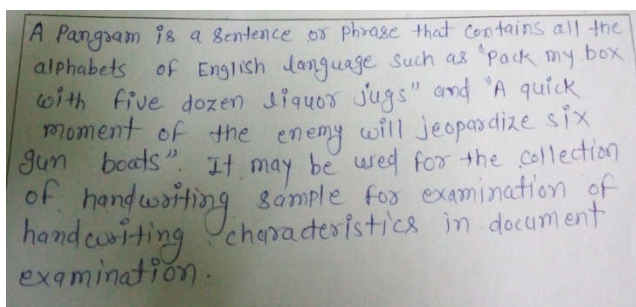 A Pangram is a sentence or phrase that contains all the
alphabets of English language such as "pack my box
with five dozen liquor jugs" and "A quick
moment of the enemy will jeopardize six
gun boats". It may be used for the collection
of handwriting sample for examination of
handwriting characteristics in document
examination.